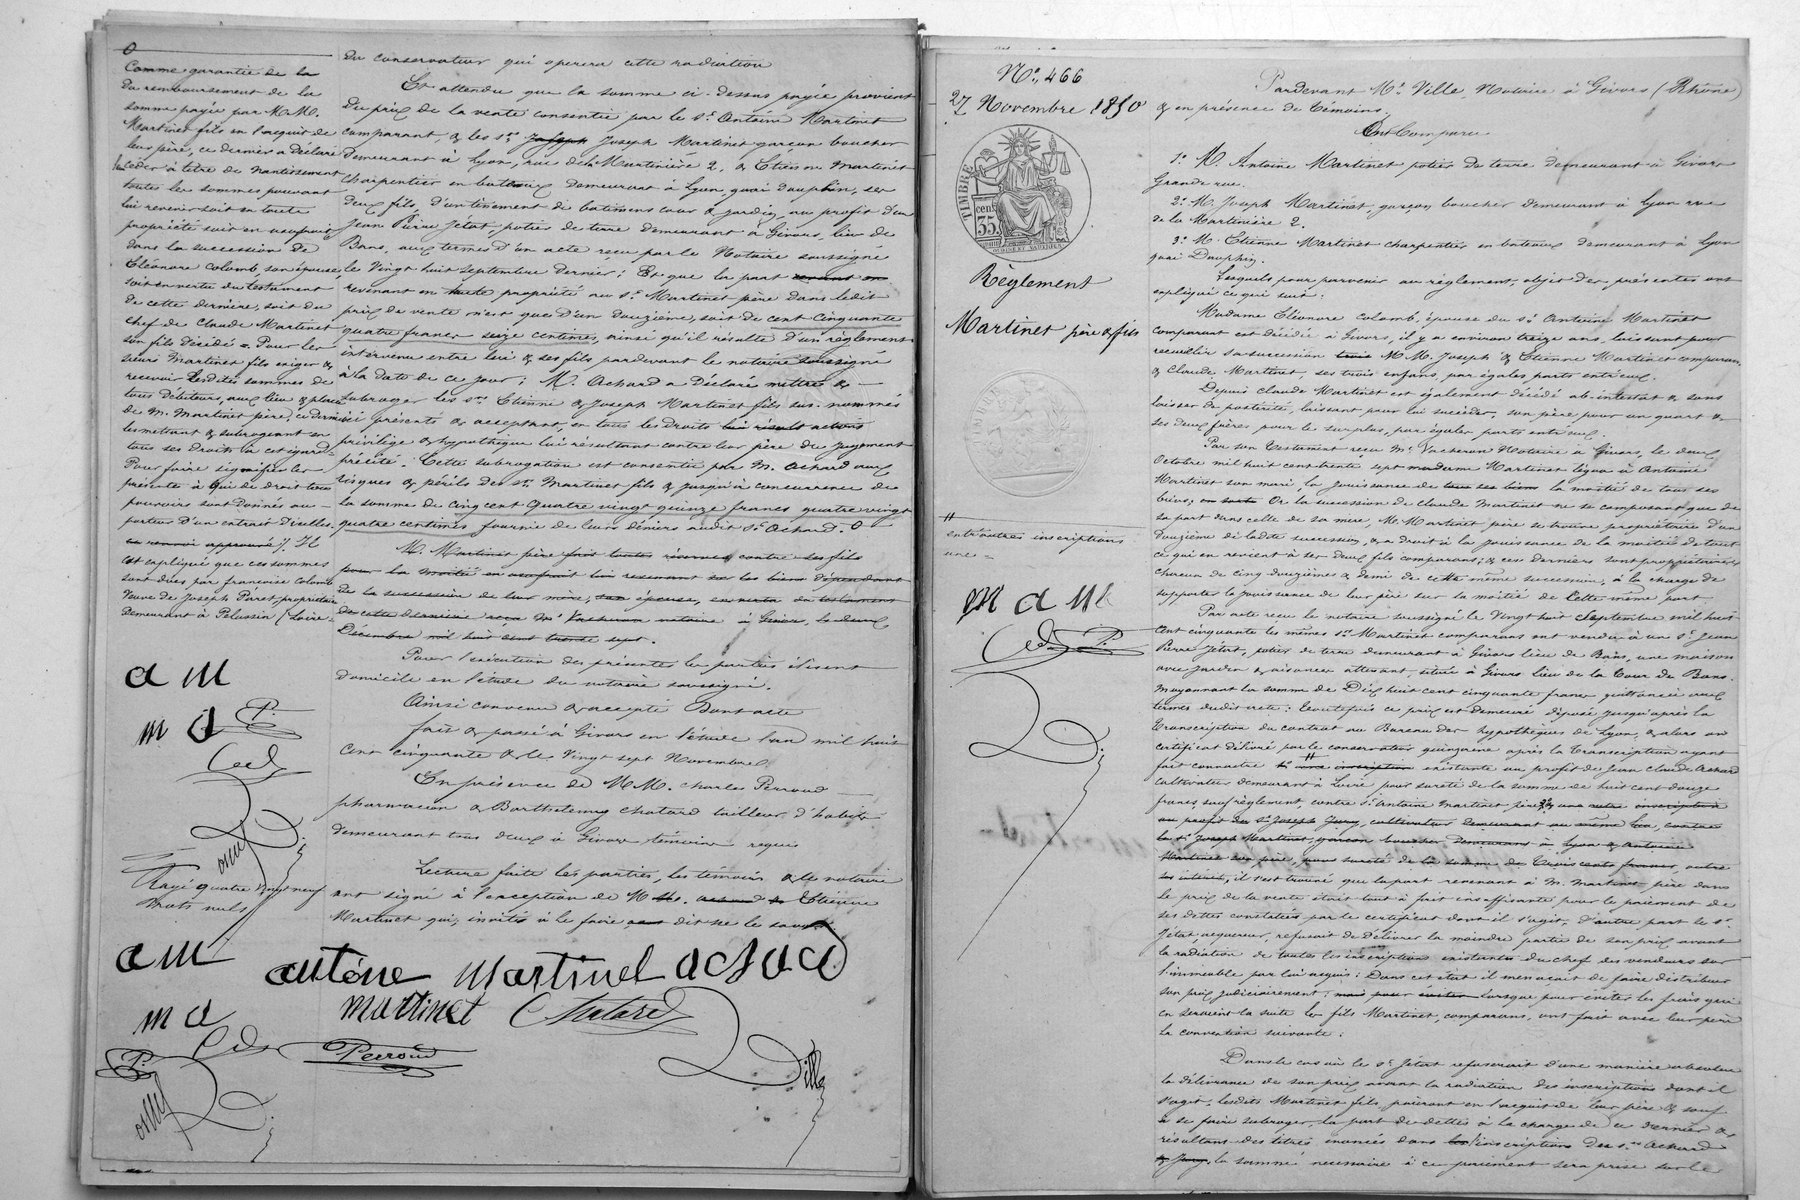 du conservateur qui operera cette radiation
Et attendu que la somme ci-dessus payée provient
du prix de la vente consentie par le Sr. Antoine Martinet
comparant, & les Srs. Joseph Joseph Martinet garçon boucher
demeurant à Lyon, rue de la Martinière 2, & Etienne Martinet
charpentier en bateaux demeurant à Lyon, quai Dauphin, ses
deux fils, d'un tinement de batimens cour & jardin, au profit d'un
Jean Pierre Jétat potier de terre demeurant à Givors, lieu de
Bans, aux termes d'un acte reçu par le Notaire soussigné
le Vingt huit Septembre dernier; Et que la part
revenant en toute propriété au Sr. Martinet père dans ledit
prix de vente n'est que d'un douzième, soit de cent cinquante
quatre francs seize centimes, ainsi qu'il résulte d'un règlement
intervenu entre lui & ses fils pardevant le notaire soussigné
à la date de ce jour; M. Achard a déclaré mettre &
subroger les Srs. Etienne & Joseph Martinet fils sus-nommés
ici présents & acceptant, en tous les droits
privilège & hypothèque lui résultant contre leur père du jugement
précité. Cette subrogation est consentie par M. Achard aux
risques & périls des Srs. Martinet fils & jusqu'à concurrence de
la somme de cinq cent quatre vingt quinze francs quatre vingt
quatre centimes fournie de leurs deniers audit Sr. Achard. O
M. Martinet père fait toutes réserves contre ses fils
pour la moitié en usufruit lui revenant sur les biens dépendant
de la succession de leur mère, son épouse, en vertu du testament
de cette dernière reçu Me. Vacheron notaire à Givors, le deux
Décembre mil huit cent trente sept.
Pour l'exécution des présentes les parties élisent
domicile en l'étude du notaire soussigné.
Ainsi convenu & accepté Dont acte
fait & passé à Givors en l'étude l'an mil huit
cent cinquante & le Vingt sept Novembre
En présence de M.M. Charles Perroud
pharmacien & Barthelemy Chatard tailleur d'habits
demeurant tous deux à Givors témoins requis
Lecture faite les parties, les témoins & le notaire
ont signé à l'exception de M. Etienne
Martinet qui, invité à le faire, a dit ne le savoir
O
Comme garantie de la
du remboursement de la
somme payée par M.M.
Martinet fils en l'acquit de
leur père, ce dernier a déclaré
céder à titre de nantissement
toutes les sommes pouvant
lui revenir soit en toute
propriété soit en usufruit
dans la succession de
Eléonore Colomb, son épouse,
soit en vertu du testament
de cette dernière, soit du
chef de Claude Martinet
son fils décédé. Pour les
sieurs Martinet fils exiger &
recevoir lesdites sommes de
tous débiteurs, aux lieu & place
de M. Martinet père, ce dernier
les mettant & subrogeant en
tous ses droits à cet égard.
Pour faire signifier les
présentes à qui de droit tous
pouvoirs sont donnés au
porteur d'un extrait d'icelles.
Il
est expliqué que ces sommes
sont dues par françoise Colomb
Veuve de Joseph Paret propriétaire
demeurant à Pelussin (Loire
a M
m a P.
Rayé quatre vingt neuf
mots nuls
a M antone Martinet achard
m a martinet Chatard
P. Perroud Ville
No. 466
27 Novembre 1850
TIMBRE
35 cent
Règlement
Martinet père & fils
entr'autres inscriptions
une =
m a M
P.
Pardevant Me. Ville Notaire à Givors (Rhône)
& en présence de témoins
Ont Comparu
1o. M. Antoine Martinet potier de terre demeurant à Givors
Grande rue.
2o. M. Joseph Martinet, garçon boucher demeurant à Lyon rue
de la Martinière 2.
3o. M. Etienne Martinet charpentier en bateaux demeurant à Lyon
quai Dauphin.
Lesquels pour parvenir au règlement, objet des présentes ont
expliqué ce qui suit:
Madame Eléonore Colomb, épouse du Sr. Antoine Martinet
comparant est décédée à Givors, il y a environ treize ans, laissant pour
recueillir sa succession trois M.M. Joseph & Etienne Martinet comparans,
& Claude Martinet, ses trois enfans, par égales parts entr'eux.
Depuis Claude Martinet est également décédé ab-intestat & sans
laisser de postérité, laissant pour lui succéder, son père pour un quart &
ses deux frères pour le surplus, par égales parts entr'eux.
Par son Testament reçu Me. Vacheron Notaire à Givors, le deux
Octobre mil huit cent trente sept madame Martinet légua à Antoine
Martinet son mari, la jouissance de tous ses biens la moitié de tous ses
biens; Or la succession de Claude Martinet ne se composant que de
sa part dans celle de sa mère, M. Martinet père se trouve propriétaire d'un
douzième de ladite succession, & a droit à la jouissance de la moitié de tout
ce qui en revient à ses deux fils comparans; & ces derniers sont propriétaires
chacun de cinq douzièmes & demi de cette même succession, à la charge de
supporter la jouissance de leur père sur la moitié de cette même part
Par acte reçu le notaire soussigné le Vingt huit Septembre mil huit
cent cinquante les mêmes Srs. Martinet comparans ont vendu à un Sr. Jean
Pierre Jétat, potier de terre demeurant à Givors lieu de Bans, une maison
avec jardin & aisances attenant, située à Givors lieu de la Tour de Bans.
Moyennant la somme de Dix huit cent cinquante francs quittancée aux
termes dudit acte: toutefois ce prix est demeuré déposé jusqu'après la
transcription du contrat au Bureau des hypothèques de Lyon, & alors un
certificat délivré par le conservateur quinzaine après la transcription ayant
fait connaitre inscription existante au profit de Jean Claude Achard
cultivateur demeurant à Loire pour sureté de la somme de huit cent douze
francs sauf règlement, contre Sr. Antoine Martinet père, une autre inscription
au profit du Sr. Joseph Jury, cultivateur demeurant au même lieu, contre
le Sr. Joseph Martinet, garçon boucher demeurant à Lyon & Antoine
Martinet son père, pour sureté de la somme de trois cents francs, outre
les intérêts, il s'est trouvé que la part revenant à M. Martinet père dans
le prix de la vente était tout à fait insuffisante pour le paiement de
ses dettes constatées par le certificat dont il s'agit. D'autre part le Sr.
Jétat, acquéreur, refusait de délivrer la moindre partie de son prix avant
la radiation de toutes les inscriptions existantes du chef des vendeurs sur
l'immeuble par lui acquis: Dans cet état il menaçait de faire distribuer
son prix judiciairement: mais pour éviter lorsque pour éviter les frais qui
en seraient la suite les fils Martinet, comparans, ont fait avec leur père
la convention suivante:
Dans le cas où le Sr. Jétat refuserait d'une manière absolue
la délivrance de son prix avant la radiation des inscriptions dont il
s'agit, lesdits Martinet fils, paieront en l'acquit de leur père & sauf
à se faire subroger, la part de dettes à la charge de ce dernier &
résultant des titres énoncés dans les inscriptions des Srs. Achard
& Jury, la somme nécessaire à ce paiement sera prise sur le